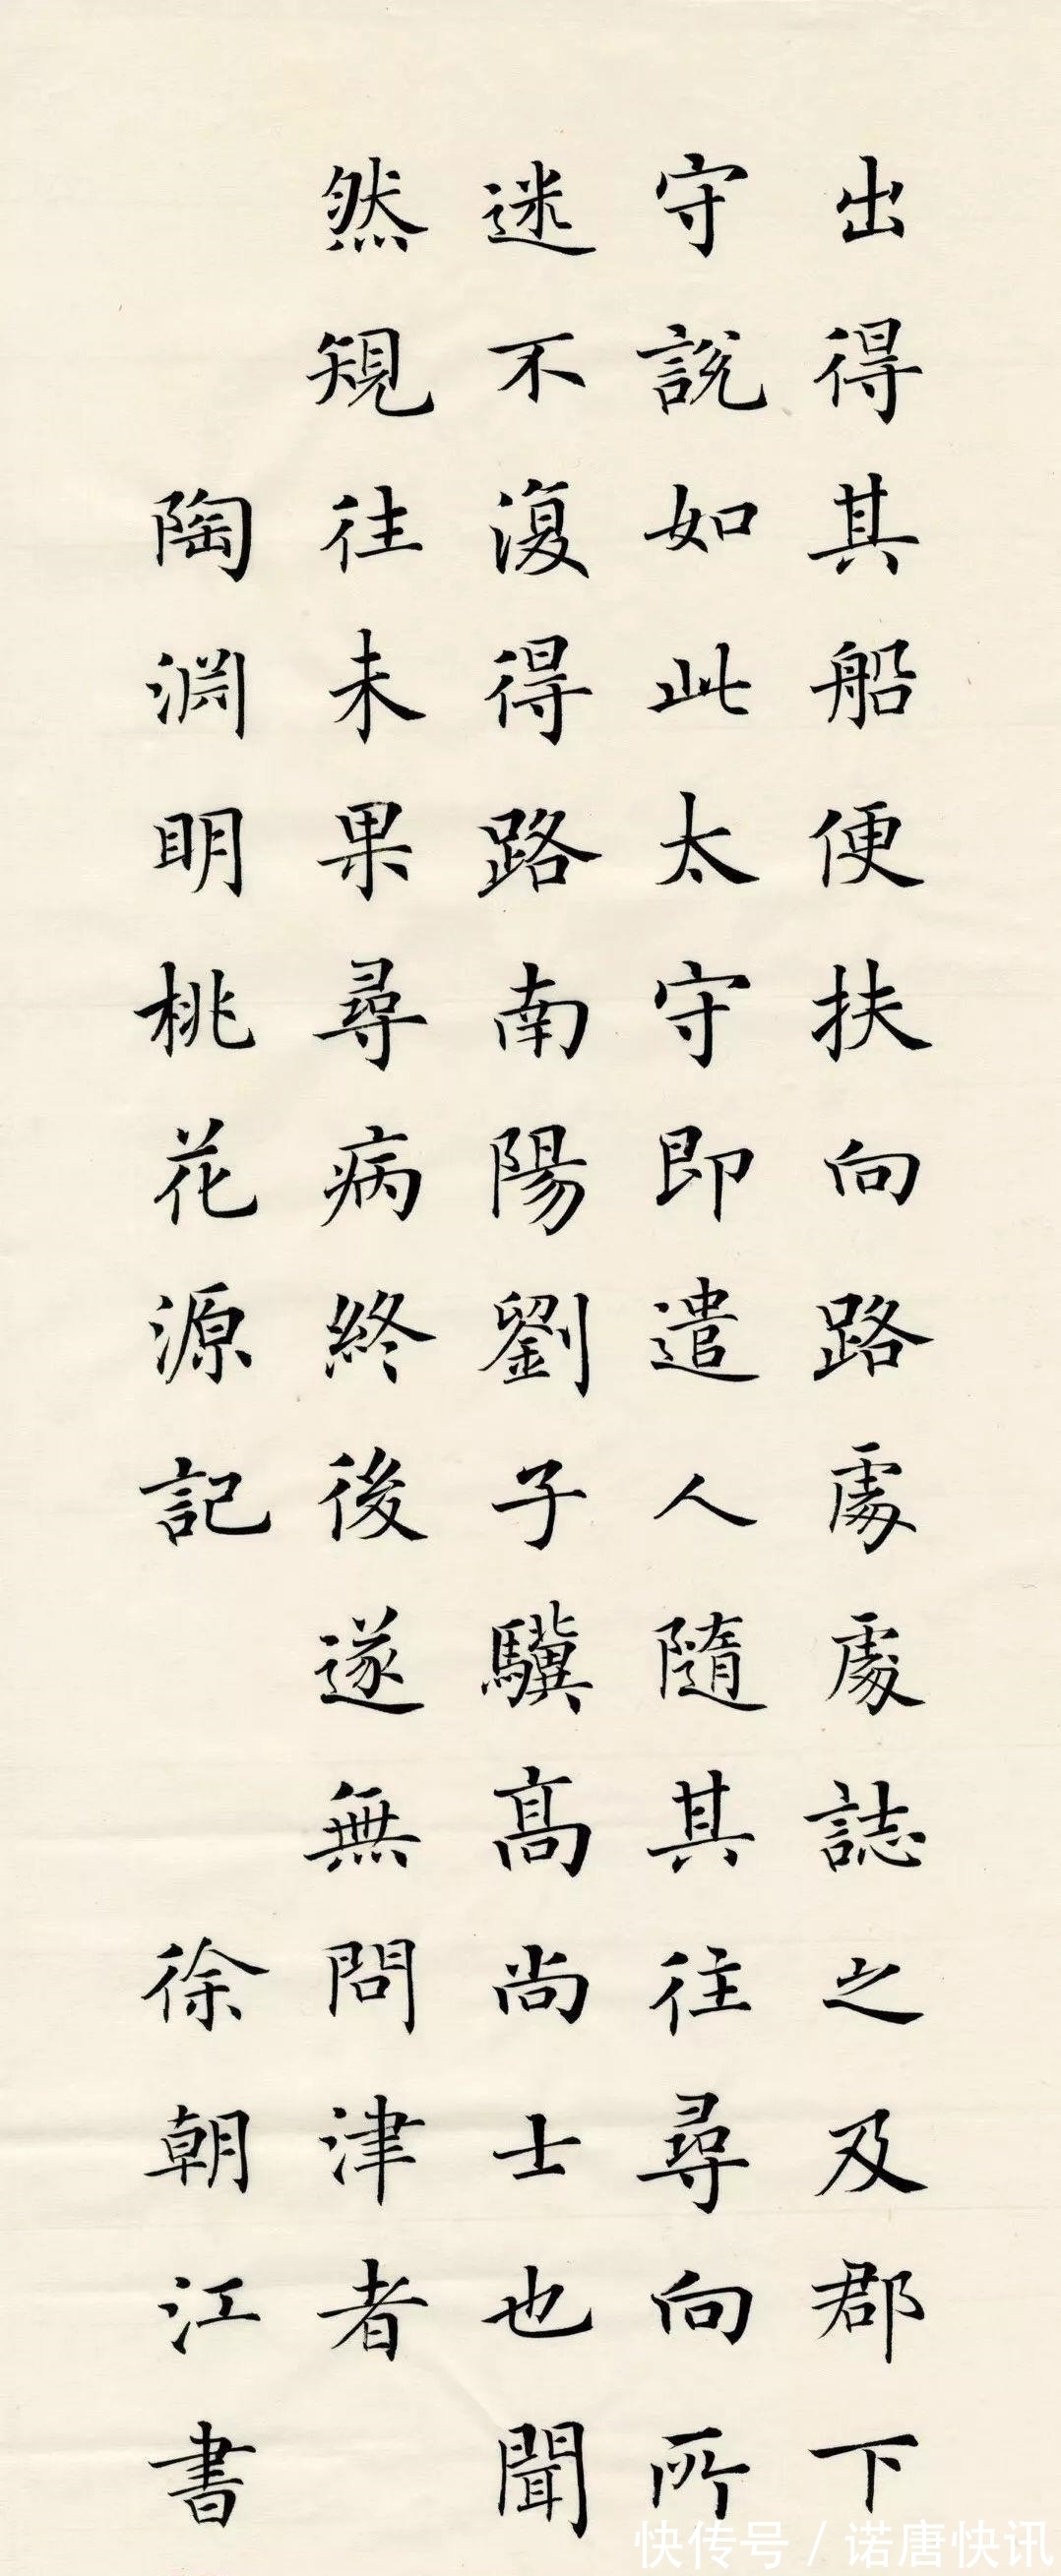 出得其船便扶向路處處誌之及郡下
守說如此太守即遣人隨其往尋向所
迷不復得路南陽劉子驥高尚士也聞
然規往未果尋病終後遂無問津者
陶淵明桃花源記
徐朝江書
快传号 / 诺唐快讯